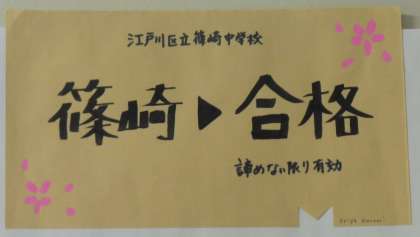 江戸川区立篠崎中学校
篠崎▶合格
諦めない限り有効